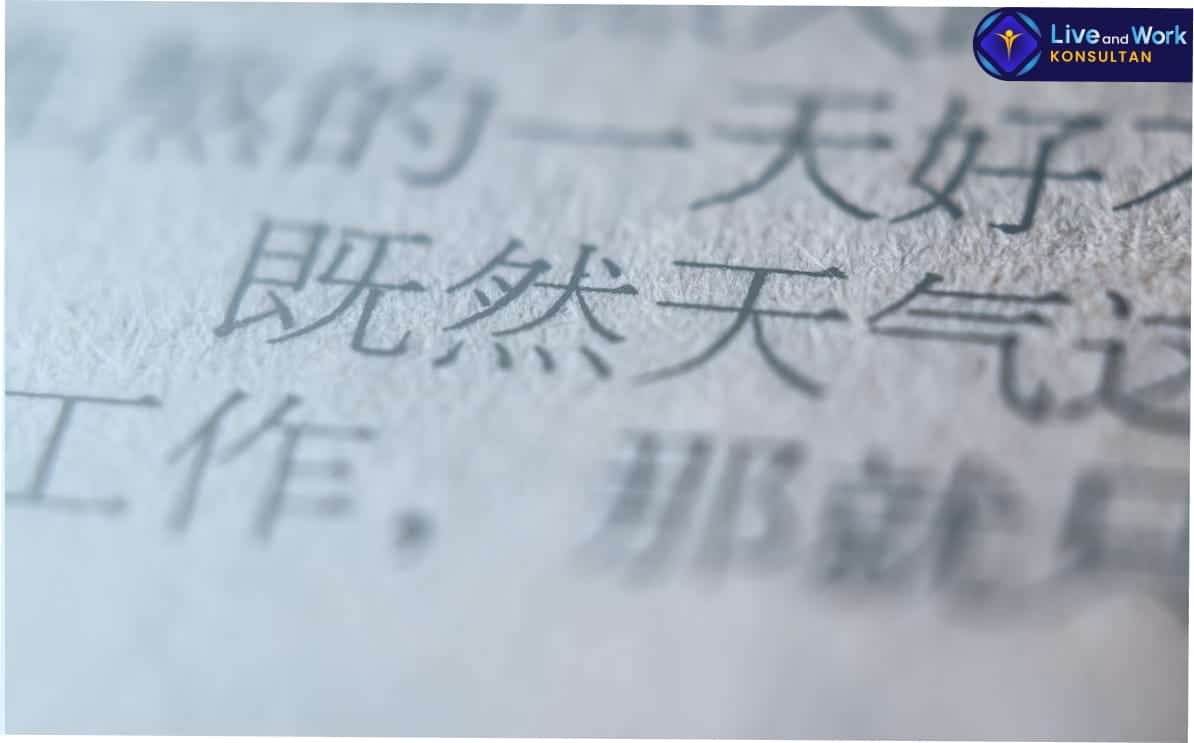 Live and Work
KONSULTAN
热的一天好
既然天气这
工作，那就